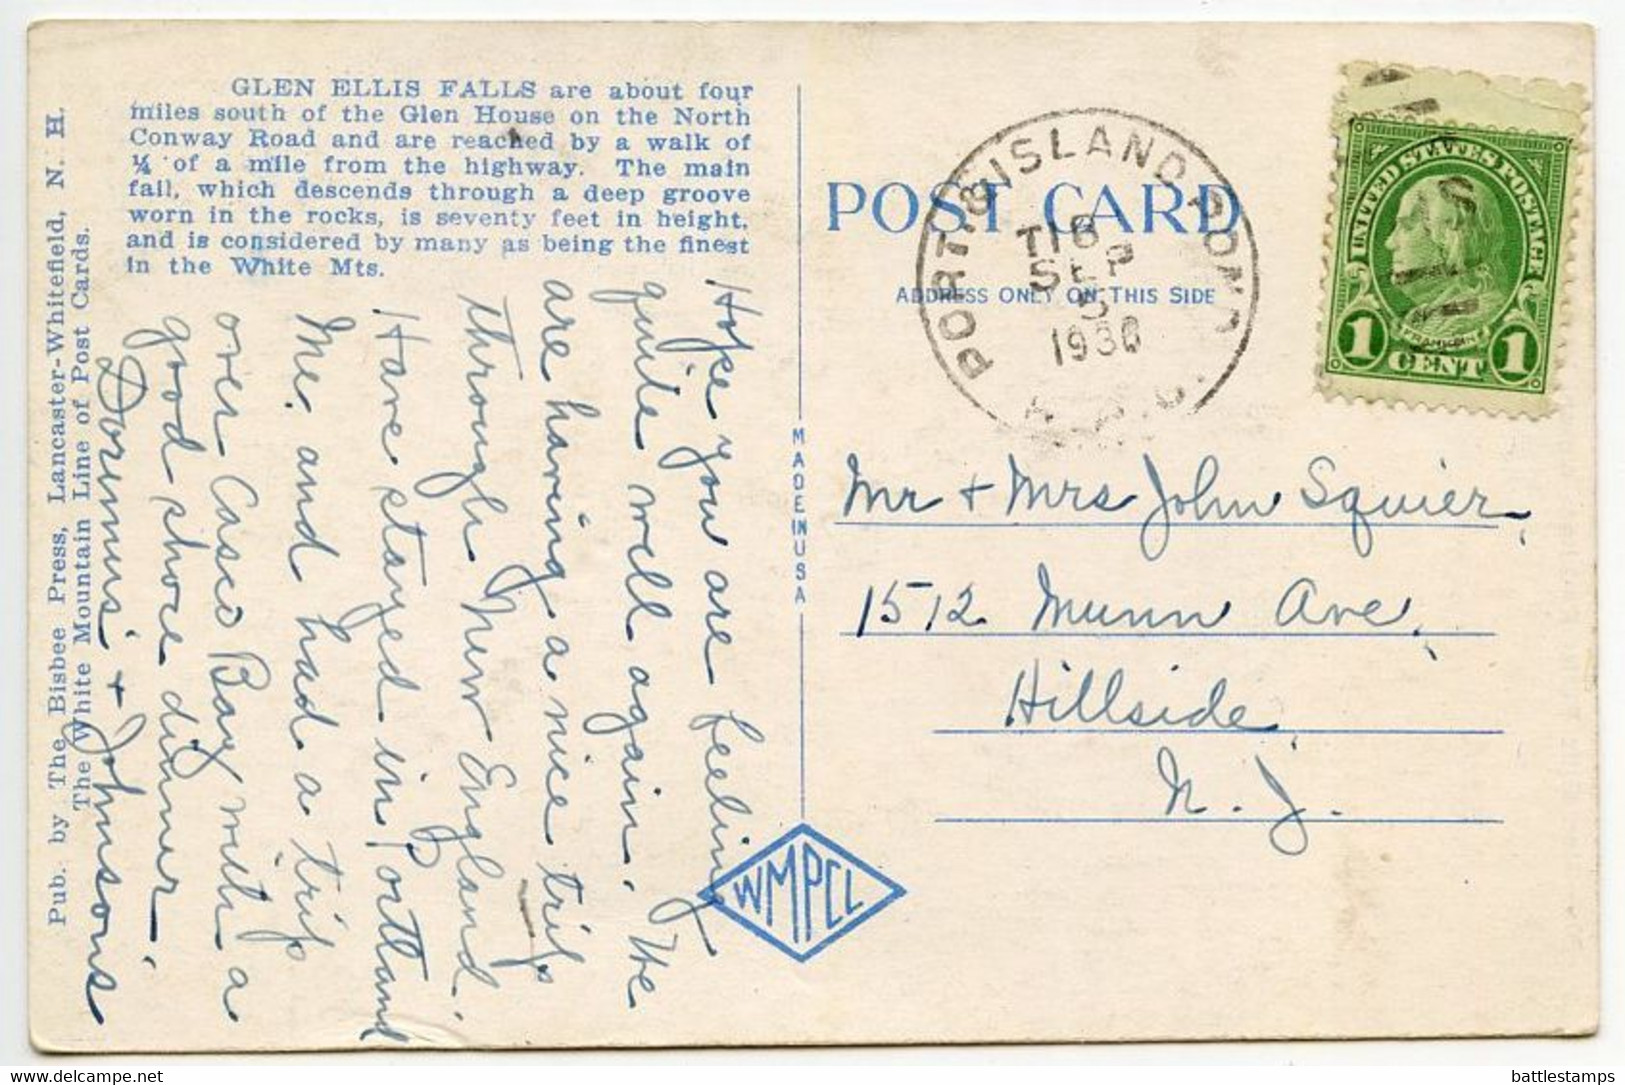 GLEN ELLIS FALLS are about four
miles south of the Glen House on the North
Conway Road and are reached by a walk of
¼ of a mile from the highway. The main
fall, which descends through a deep groove
worn in the rocks, is seventy feet in height,
and is considered by many as being the finest
in the White Mts.
Pub. by The Bisbee Press, Lancaster-Whitefield, N. H.
The White Mountain Line of Post Cards.
Hope you are feeling
quite well again. We
are having a nice trip
through New England.
Have stayed in Portland
Me. and had a trip
over Casco Bay with a
good shore dinner.
Doremus' + Johnsons
MADE IN USA
WMPCL
POST CARD
ADDRESS ONLY ON THIS SIDE
PORT. & ISLAND POND
SEP
5
UNITED STATES POSTAGE
FRANKLIN
1 CENT 1
Mr + Mrs John Squier,
1512 Munn Ave,
Hillside
N. J.
battlestamps